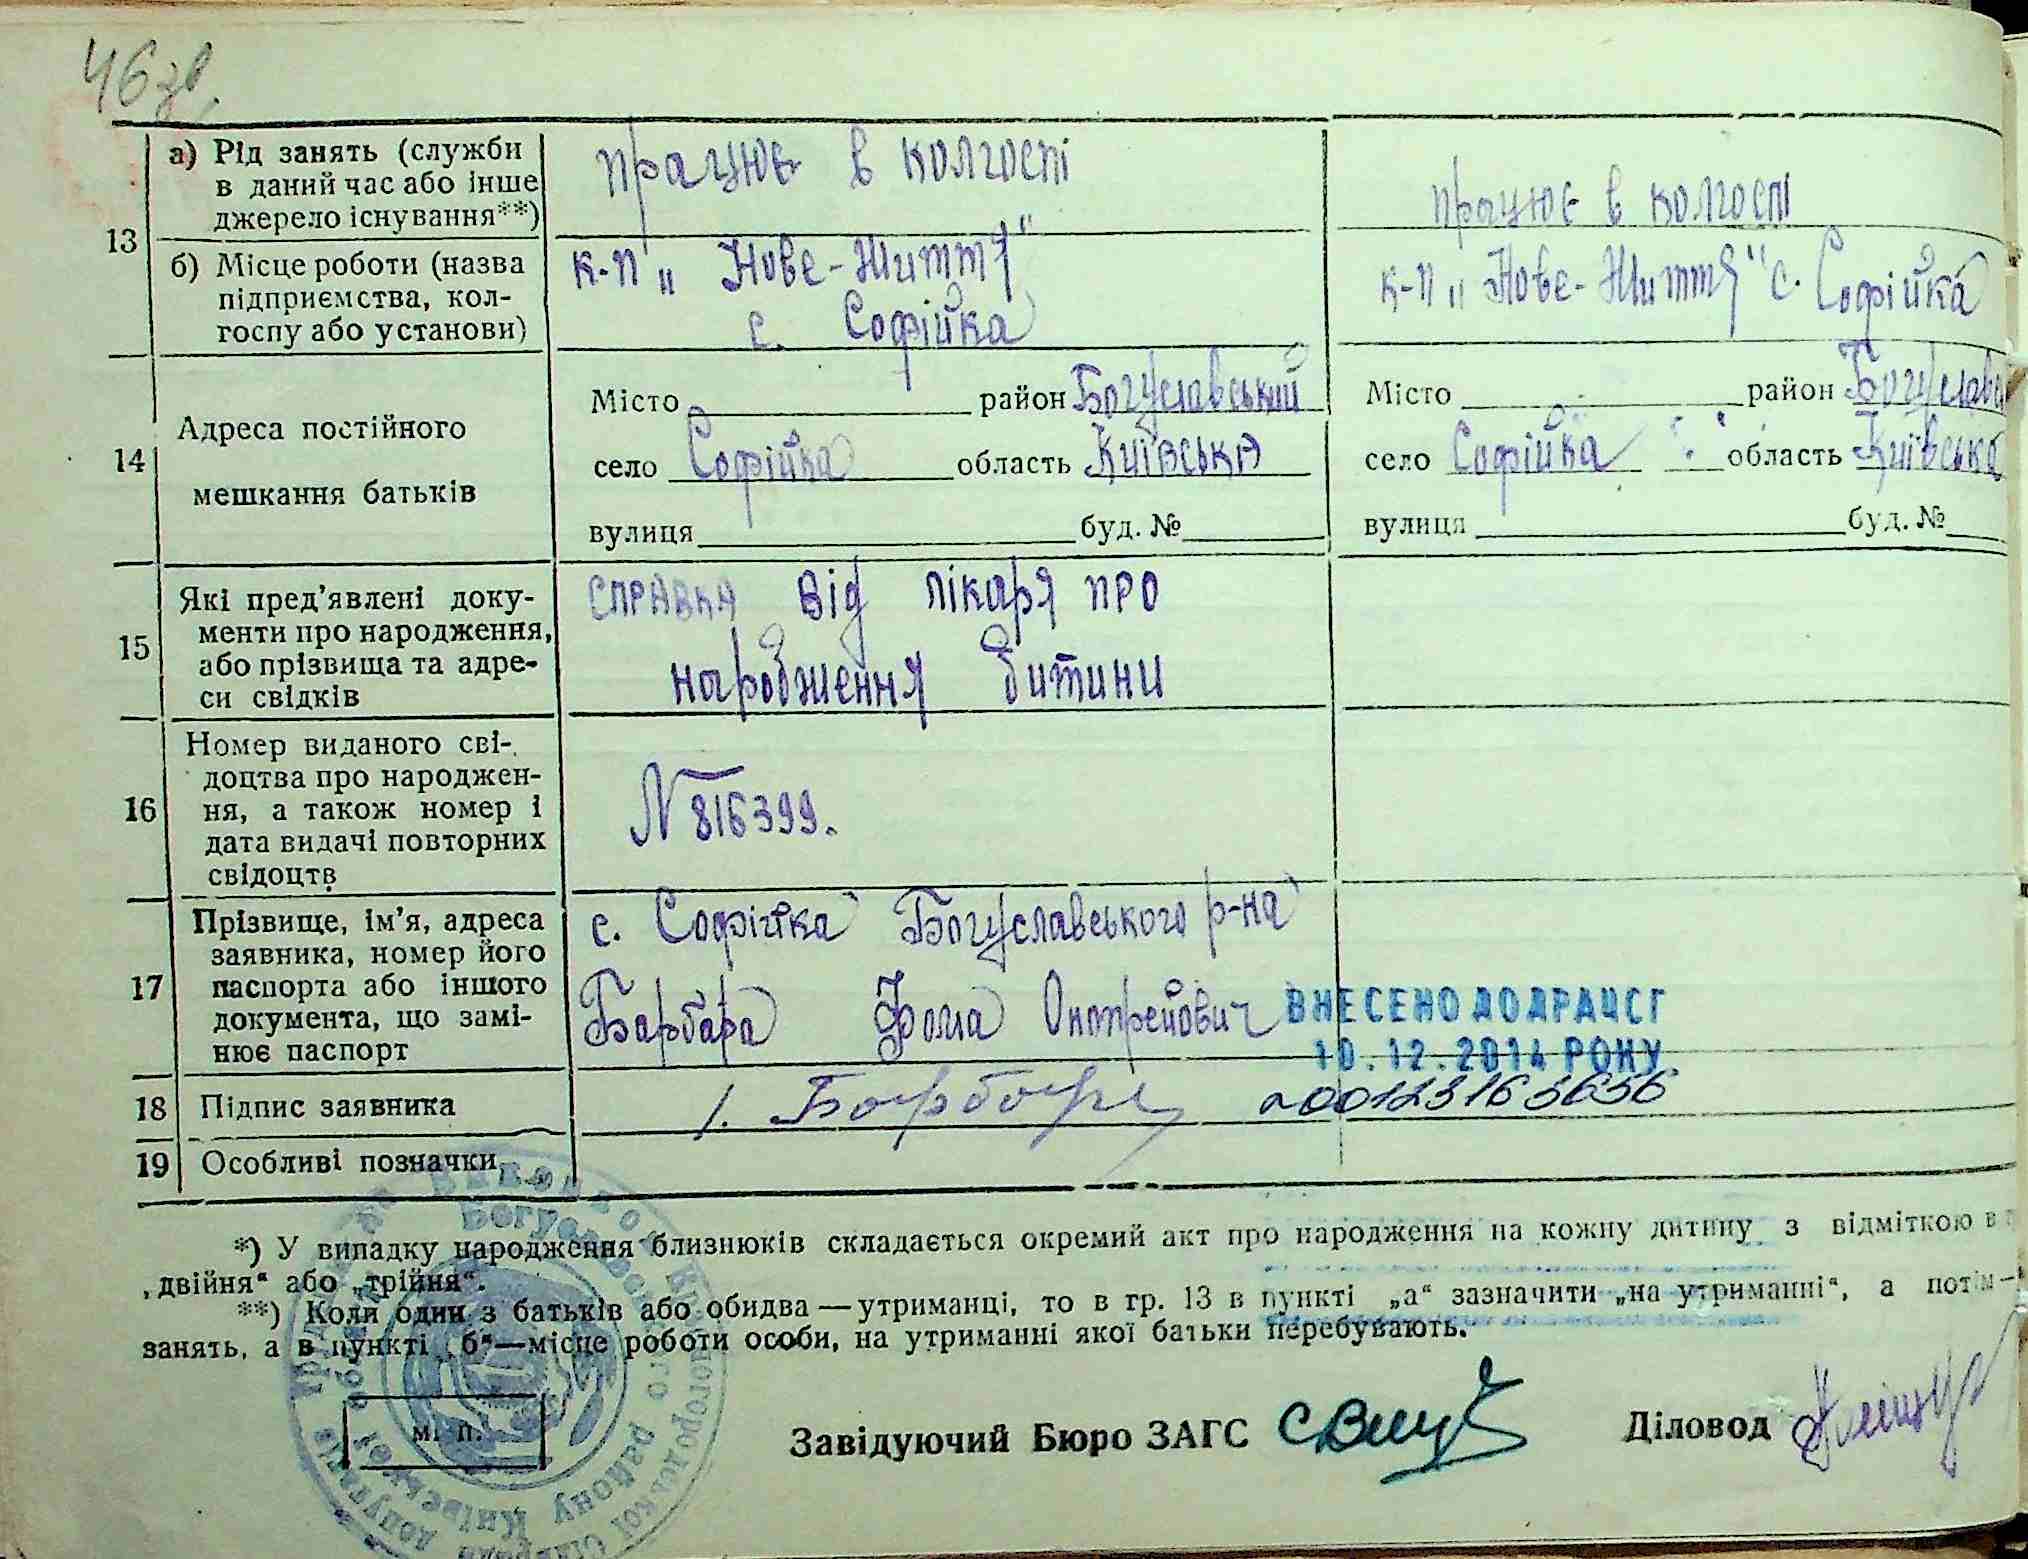 46 зв.
13
а) Рід занять (служби
в даний час або інше
джерело існування**)
працює в колгоспі
працює в колгоспі
б) Місце роботи (назва
підприємства, кол-
госпу або установи)
к-п „Нове-Життя"
с. Софійка
к-п „Нове-Життя" с. Софійка
14
Адреса постійного
мешкання батьків
Місто район Богуславський
село Софійка область Київська
вулиця буд. №
Місто район Богуславс
село Софійка область Київська
вулиця буд. №
15
Які пред’явлені доку-
менти про народження,
або прізвища та адре-
си свідків
справка від лікаря про
народження дитини
16
Номер виданого сві-
доцтва про народжен-
ня, а також номер і
дата видачі повторних
свідоцтв
N 816399.
17
Прізвище, ім’я, адреса
заявника, номер його
паспорта або іншого
документа, що замі-
нює паспорт
с. Софійка Богуславського р-на
Барбара Фома Онопрейович
ВНЕСЕНО ДО ДРАЦСГ
10.12.2014 РОКУ
18 Підпис заявника
1. Барбара
00123163656
19 Особливі позначки
*) У випадку народження близнюків складається окремий акт про народження на кожну дитину з відміткою в
„двійня“ або „трійня“.
**) Коли один з батьків або обидва — утриманці, то в гр. 13 в пункті „а“ зазначити „на утриманні“, а потім —
занять, а в пункті „б“—місце роботи особи, на утриманні якої батьки перебувають.
М. П.
Завідуючий Бюро ЗАГС
Діловод